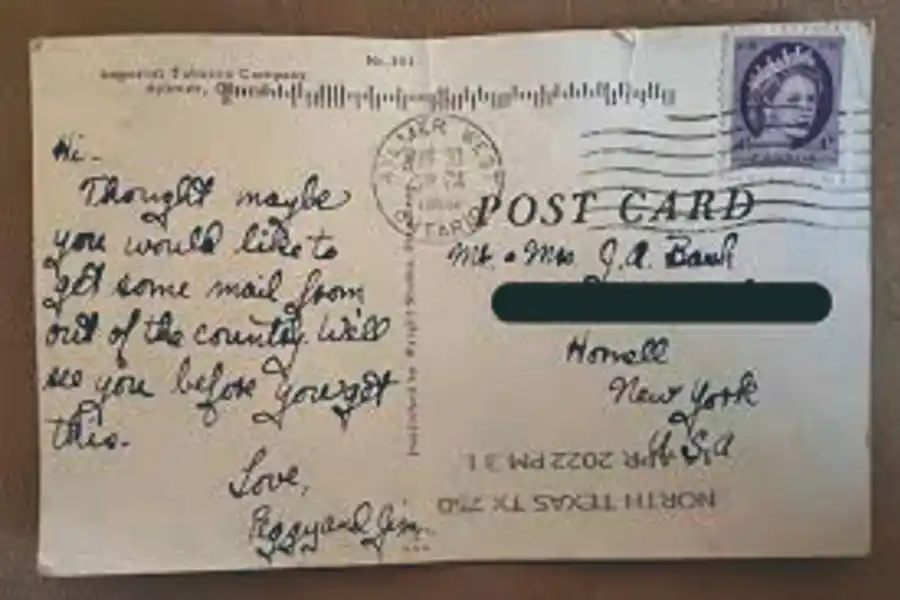 No. 101
Imperial Tobacco Company
Aylmer,
AYLMER WEST
ONTARIO
CANADA
POST CARD
Hi-
Thought maybe
you would like to
get some mail from
out of the country. We'll
see you before you get
this.
Love,
Peggy and Jim.
Mr. & Mrs. J.A.
New York
U.S.A
APR 2022 PM 3 L
NORTH TEXAS TX 750